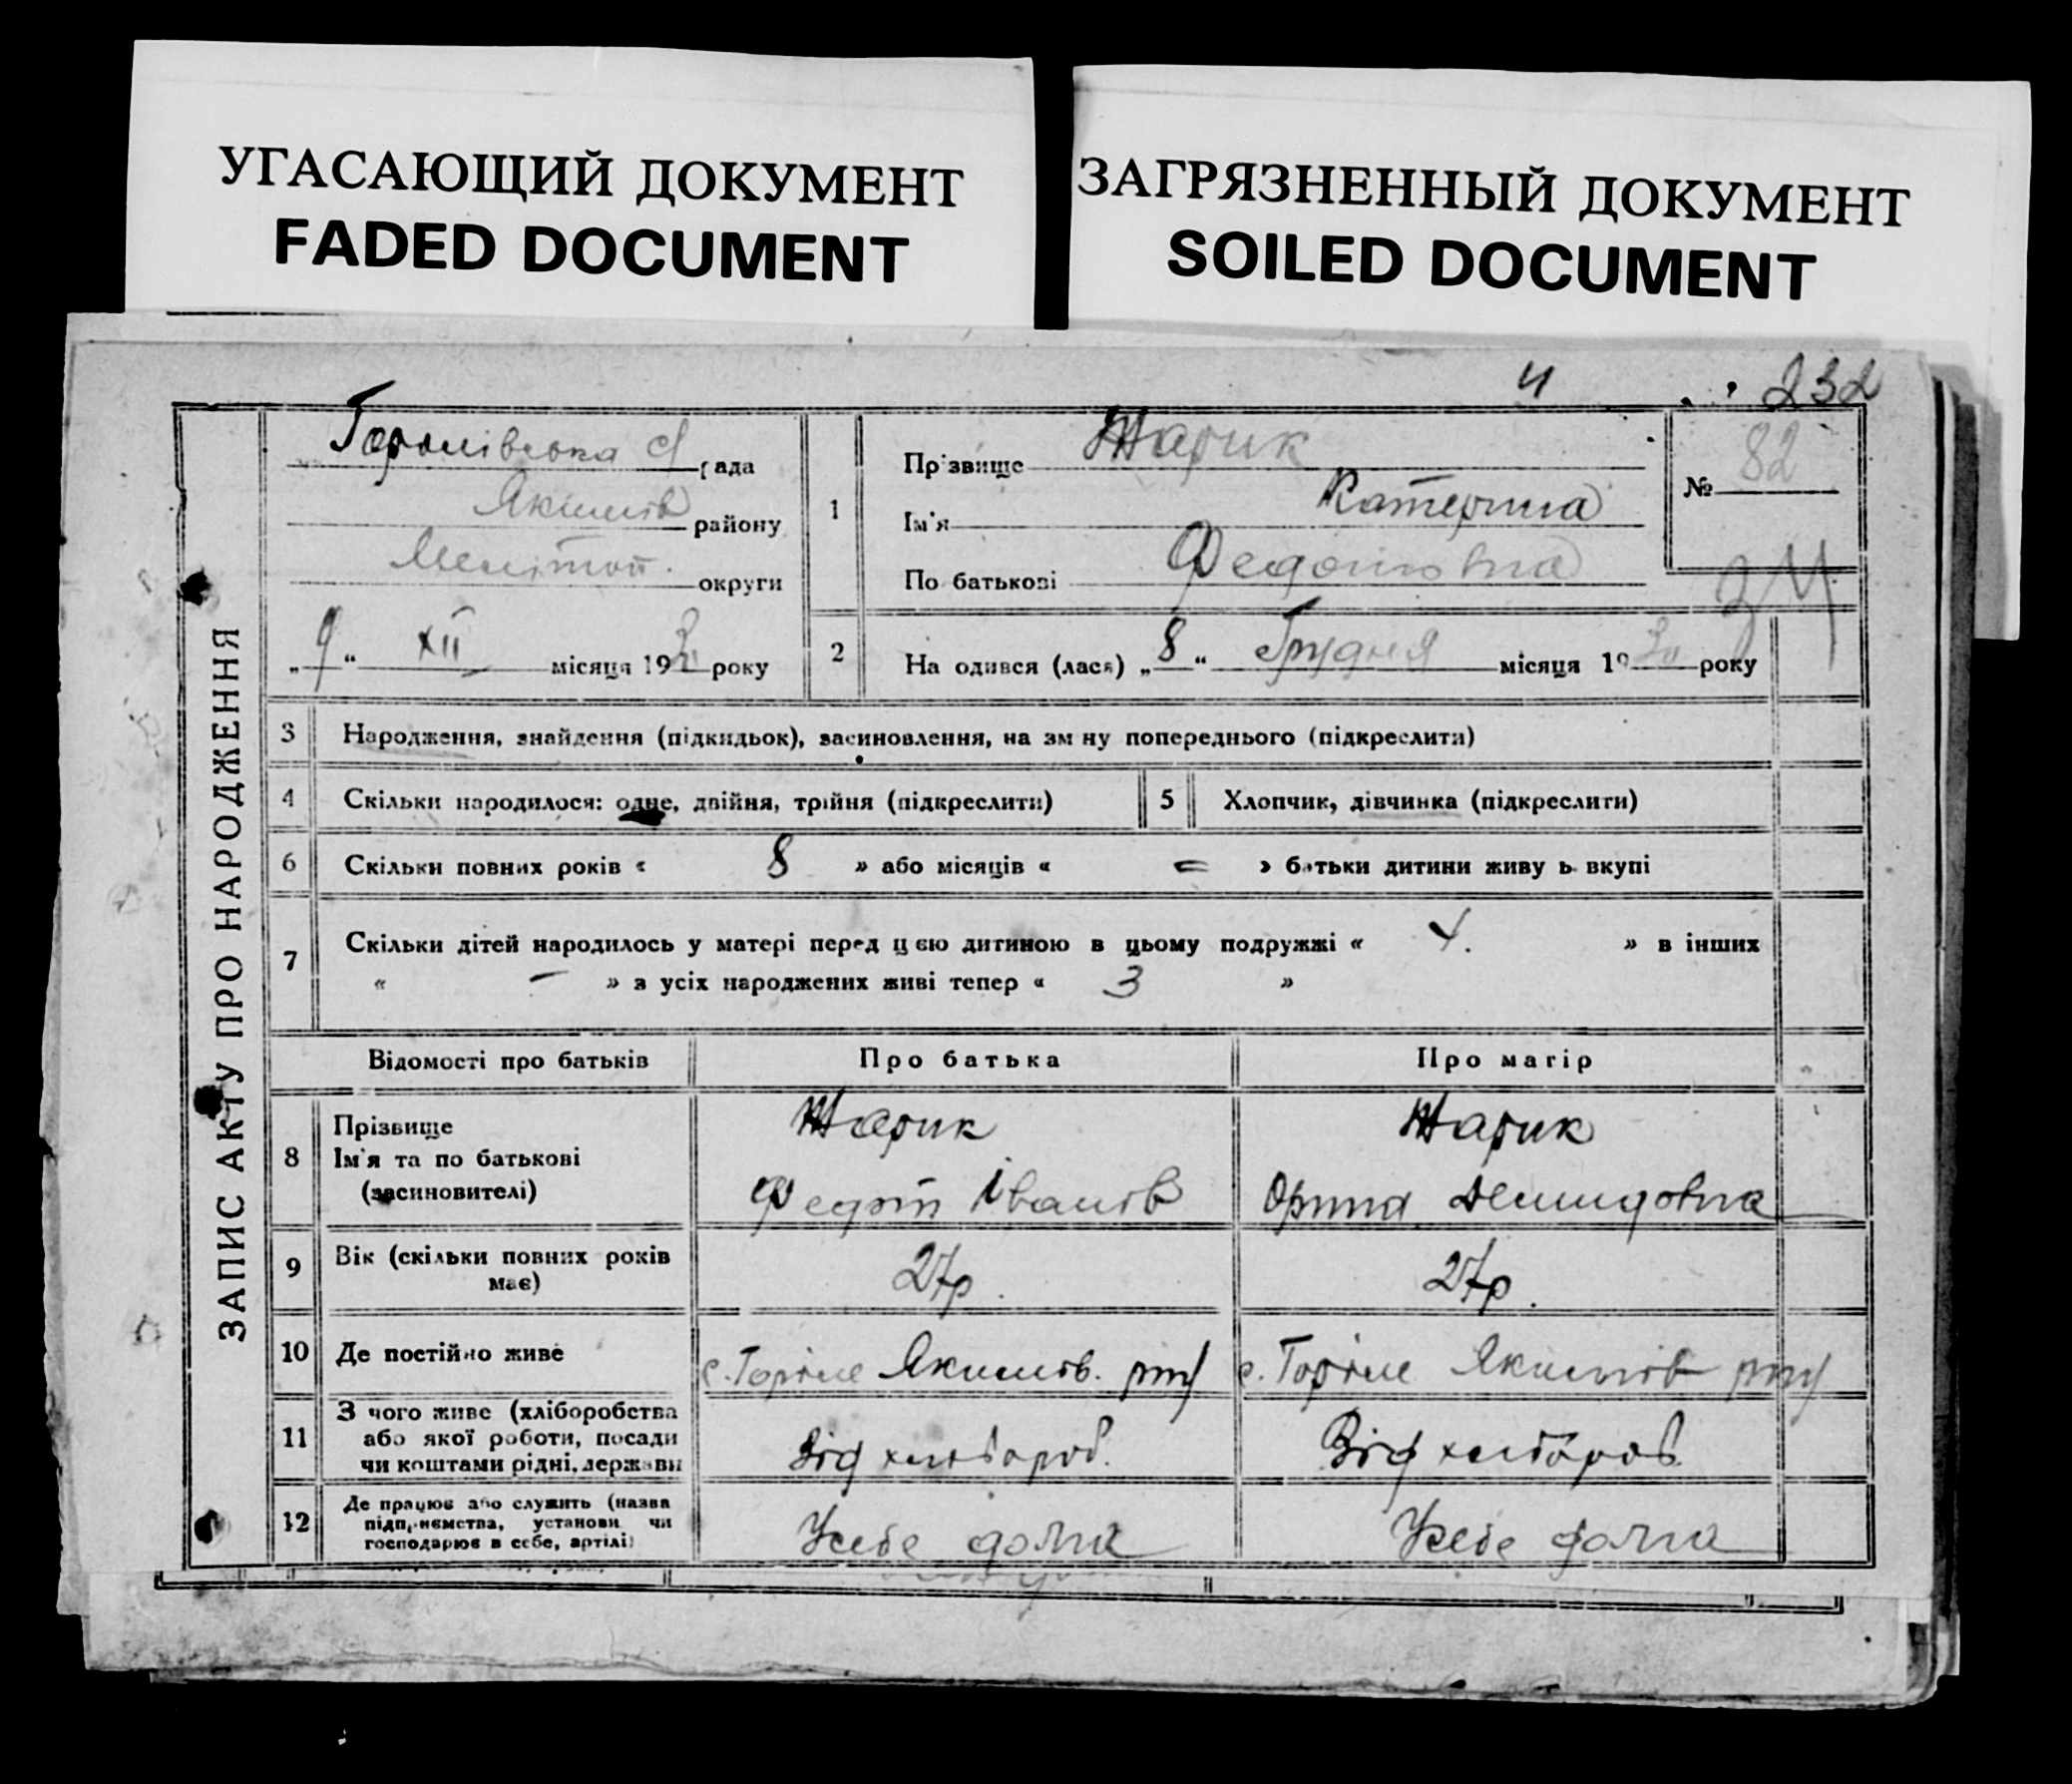 УГАСАЮЩИЙ ДОКУМЕНТ
FADED DOCUMENT
ЗАГРЯЗНЕННЫЙ ДОКУМЕНТ
SOILED DOCUMENT
232
ЗАПИС АКТУ ПРО НАРОДЖЕННЯ
рада
Якимів району
Меліт округи
„9“ XII місяця 193 року
1
Прізвище Жарик
Ім'я Катерина
По батькові Федотовна
№ 82
2 На одився (лася) „8“ Грудня місяця 1930 року
3 Народження, знайдення (підкидьок), засиновлення, на зм ну попереднього (підкреслити)
4 Скільки народилося: одне, двійня, трійня (підкреслити)
5 Хлопчик, дівчинка (підкреслити)
6 Скільки повних років « 8 » або місяців « = » батьки дитини живу ь вкупі
7 Скільки дітей народилось у матері перед цією дитиною в цьому подружжі « 4. » в інших
« – » з усіх народжених живі тепер « 3 »
Відомості про батьків Про батька Про матір
8 Прізвище
Ім'я та по батькові
(засиновителі)
Жарик
Федот Іванів
Жарик
Орина Демидовна
9 Вік (скільки повних років
має)
27р.
27р.
10 Де постійно живе
с. Горіле Якимів. р
с. Горіле Якимів р
11 З чого живе (хліборобства
або якої роботи, посади
чи коштами рідні, держави
Від хлібороб.
Від хлібороб
12 Де працює або служить (назва
підприємства, установи чи
господарює в себе, артілі)
Усебе дома
Усебе дома